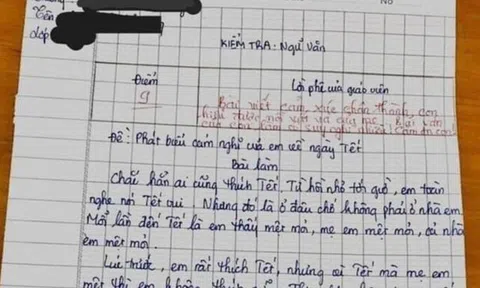 Tên
Lớp
No
KIỂM TRA: Ngữ Văn
Điểm
Lời phê của giáo viên
9
Bài viết cảm xúc chân thành, con
hiểu được nỗi vất vả của mẹ. Bài văn
của con làm cô suy nghĩ nhiều! Cảm ơn con!
Đề: Phát biểu cảm nghĩ của em về ngày Tết
Bài làm
Chắc hẳn ai cũng thích Tết. Từ hồi nhỏ tới giờ, em toàn
nghe nói Tết vui. Nhưng đó là ở đâu chứ không phải ở nhà em.
Mỗi lần đến Tết là em thấy mệt mỏi, mẹ em mệt mỏi, cả nhà
em mệt mỏi.
Lúc trước, em rất thích Tết, nhưng vì Tết mà mẹ em
mệt thì em không thích